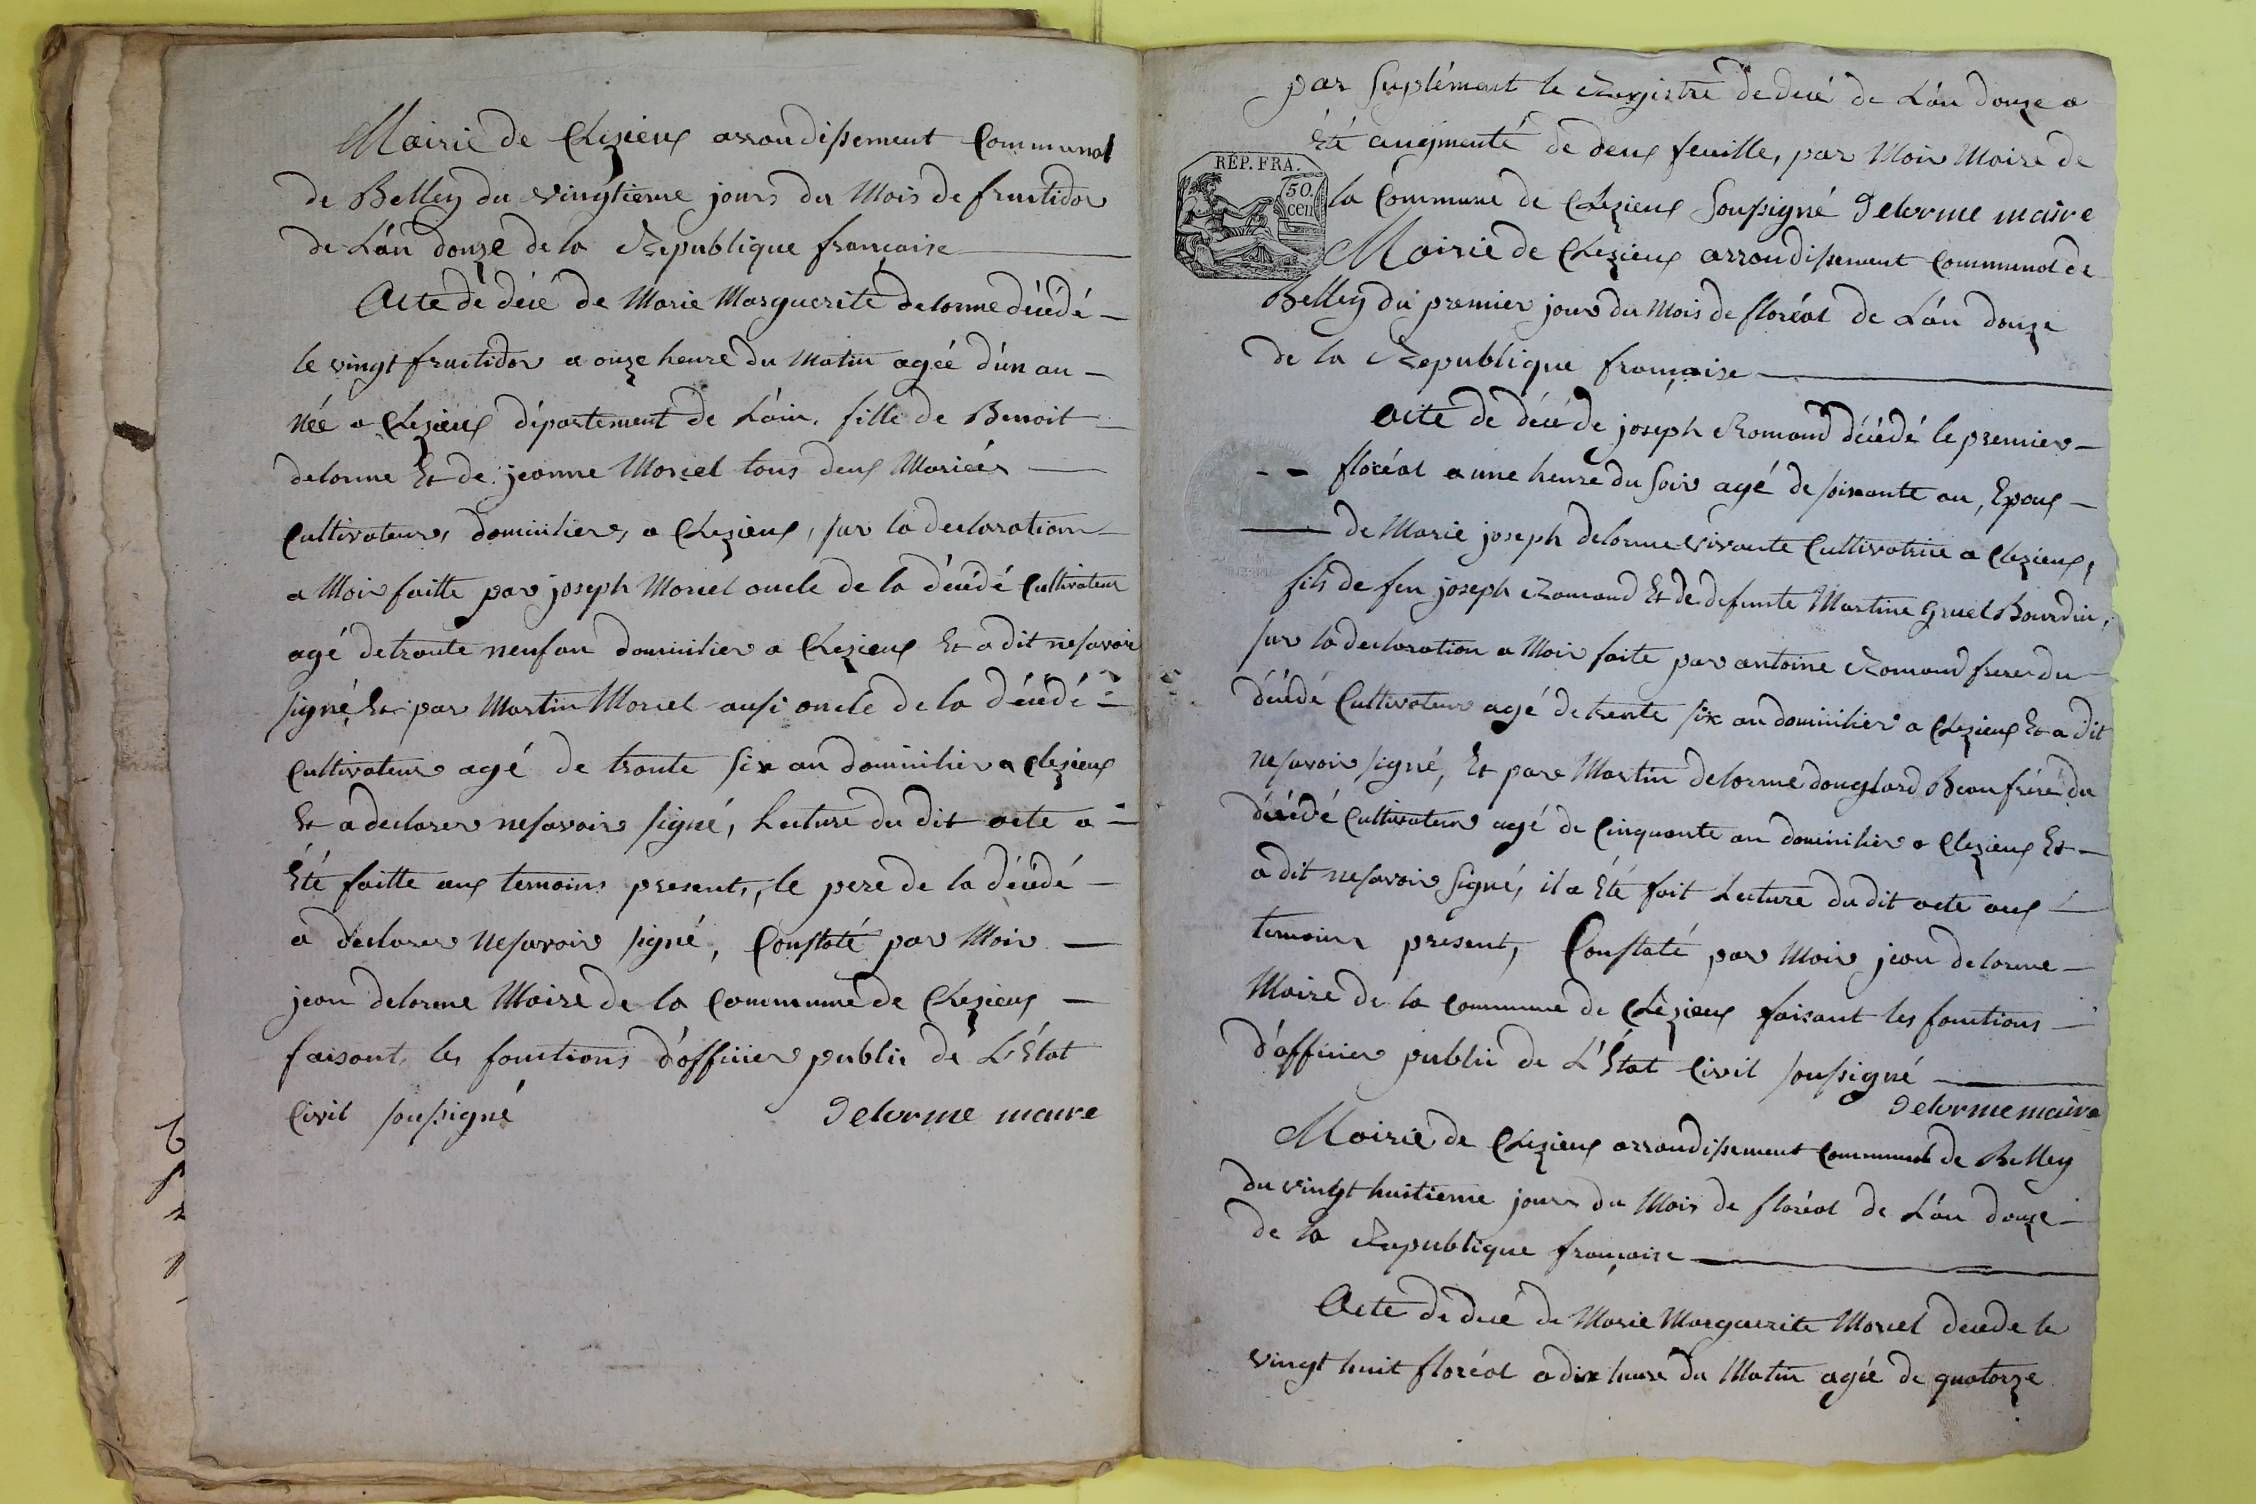 Mairie de Chezieux arrondissement Communal
de Belley du vingtieme jours du Mois de fructidor
de L'án douze de la Republique francaise
Acte de décé de Marie Marguerite delorme décédé
le vingt fructidor a onze heure du Matin agéé d'un an
née a Chezieux département de L'áin, fille de Benoit
delorme Et de jeanne Morcel tous deux Mariées
Cultivateurs domicilier, a Chezieux, sur la declaration
a Moir faitte par joseph Morcel oncle de la décédé Cultivateur
agé de trante neuf an domicilier a Chezieux Et a dit ne savoir
signé, Et par Martin Morcel ausi oncle de la décédé
Cultivateur agé de trante six an domicilier a Chezieux
Et a declarer ne savoir signé, Lecture du dit acte a
Été faitte aux temoins present, le pere de la décédé
a declarer ne savoir signé, Constaté par Moir
jean delorme Maire de la Commune de Chezieux
faisant les fonctions d'officier public de L'État
Civil soussigné Delorme maire
par Suplément le Registre de décé de L'án douze a
Été augmenté de deux feuille, par Moir Maire de
RÉP. FRA.
50. cen
la Commune de Chezieux Soussigné Delorme maire
Mairie de Chezieux arrondissement Communal de
Belley du premier jour du Mois de floréal de L'án douze
de la Republique française
Acte de décé de joseph Romand décédé le premier
floréal a une heure du soir agé de soixante an, Epoux
de Marie joseph delorme vivante Cultivatrice a Chezieux,
fils de feu joseph Romand Et de defunte Martine Gruel Bourdin,
sur la declaration a Moir faite par antoine Romand frere du
décédé Cultivateur agé de trente six an domicilier a Chezieux Et a dit
ne savoir signé, Et par Martin delorme douglard Beau frére du
décédé Cultivateur agé de Cinquante an domicilier a Chezieux Et
a dit ne savoir signé, il a Été fait Lecture du dit acte aux
temoins present, Constaté par Moir jean delorme
Maire de la Commune de Chezieux faisant les fonctions
d'officier public de L'État Civil soussigné
Delorme maire
Mairie de Chezieux arrondissement Communal de Belley
du vingt huitieme jours du Mois de floréal de L'án douze
de la Republique francaise
Acte de décé de Marie Marguerite Morcel decede le
vingt huit floréal a dix heure du Matin agée de quatorze